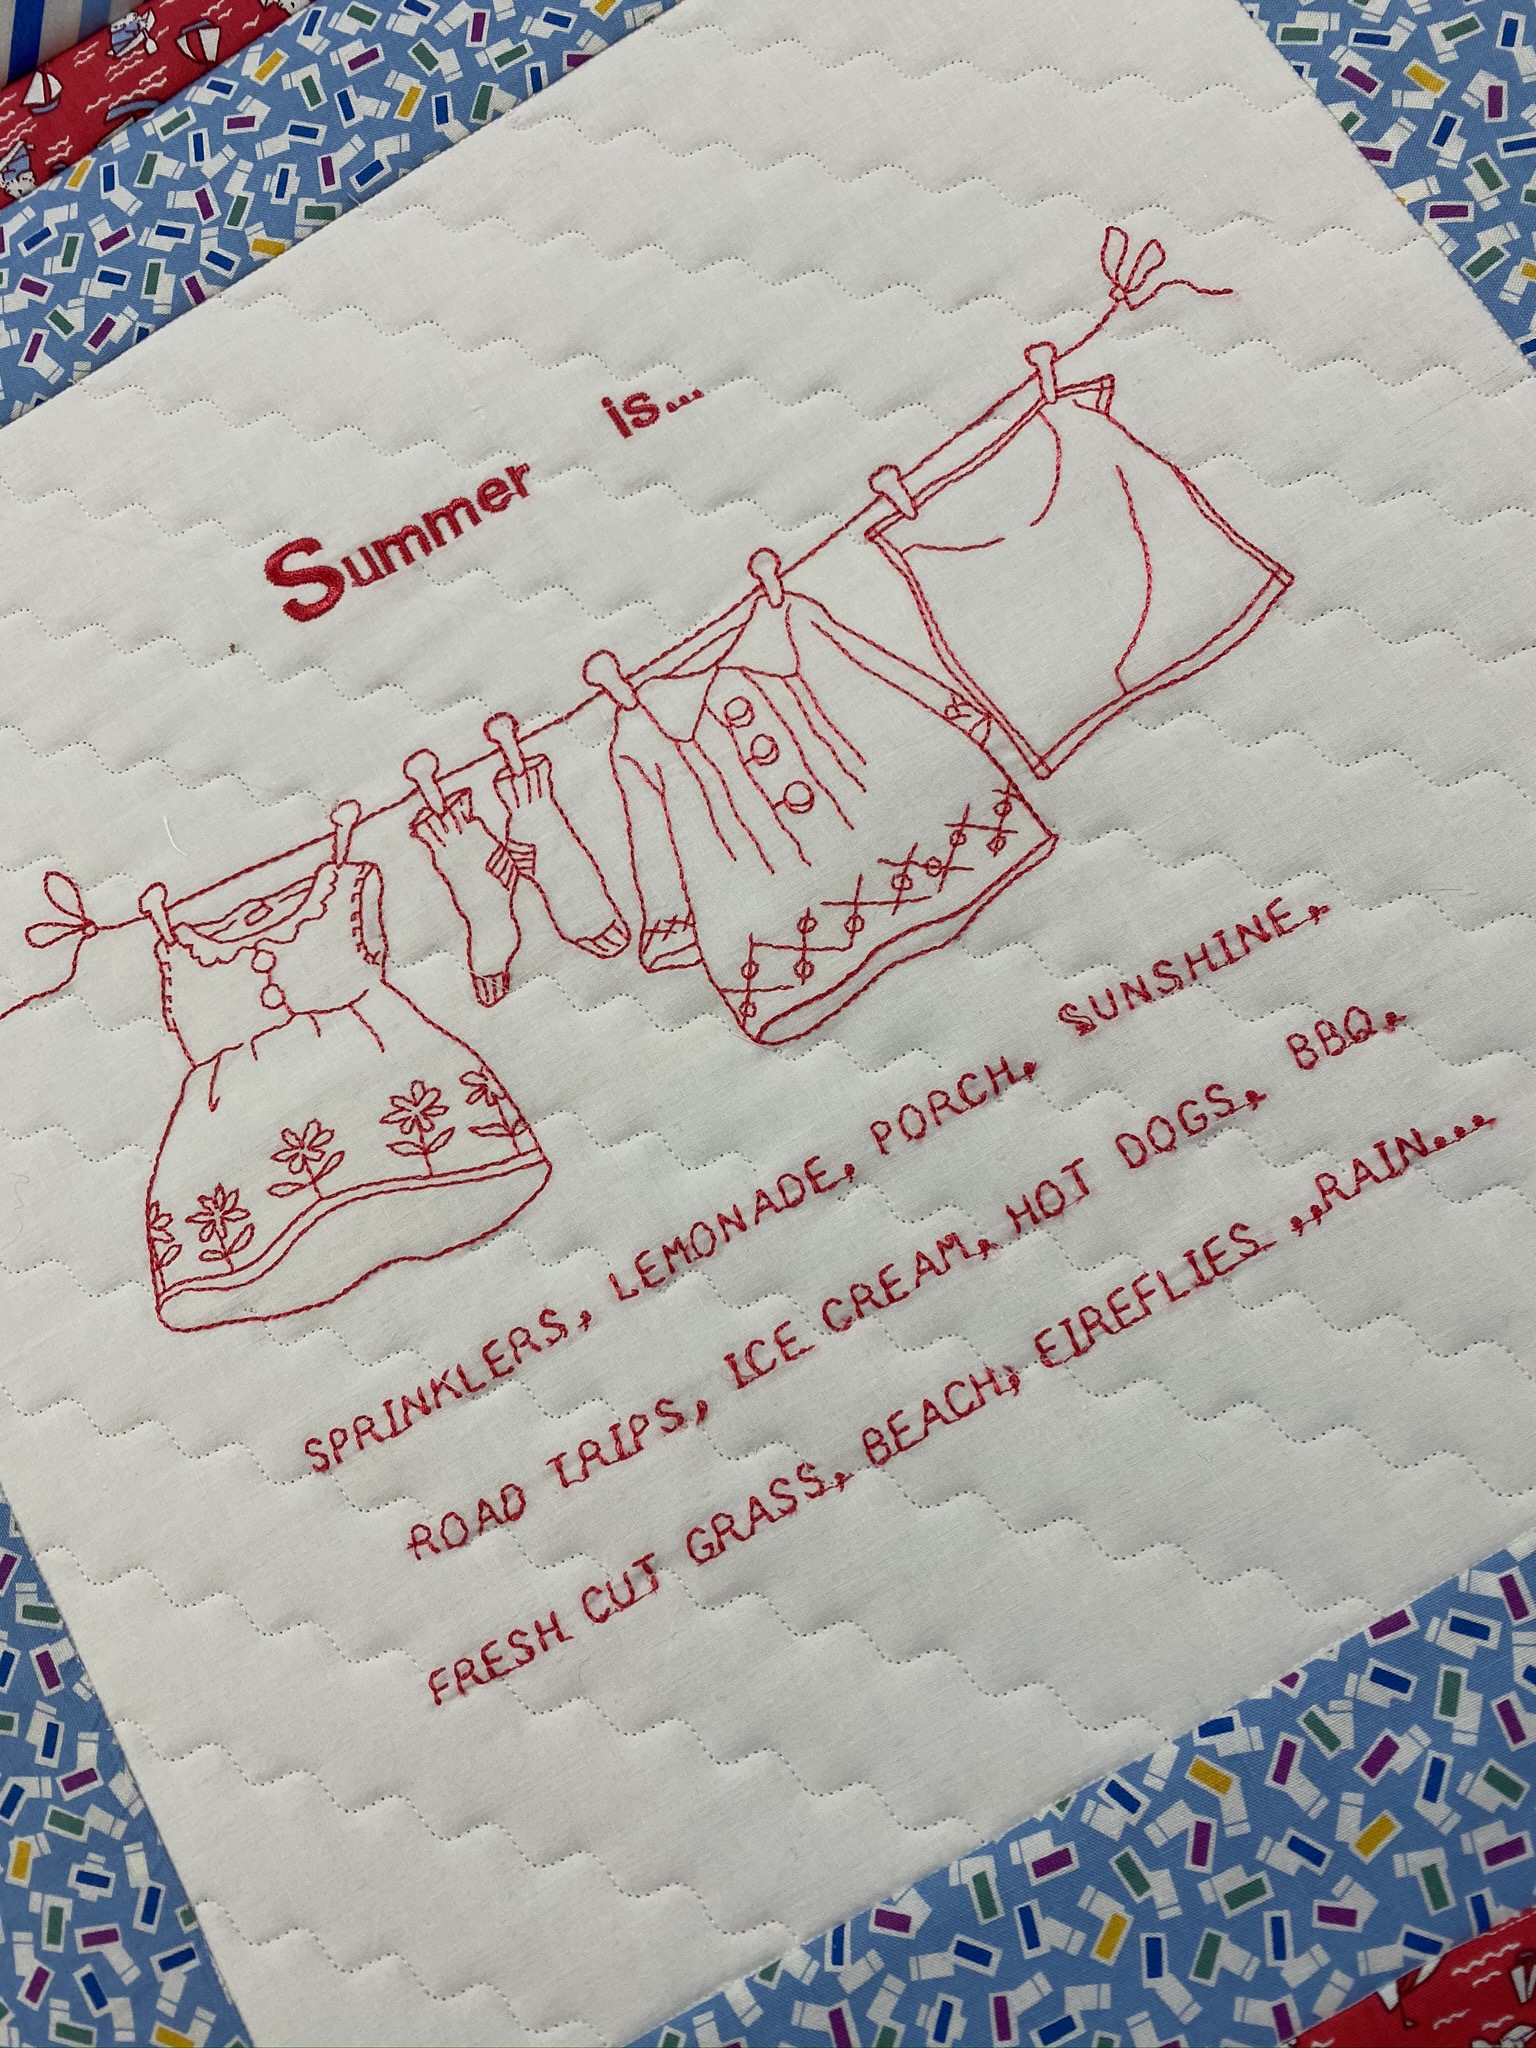 Summer is...
SPRINKLERS, LEMONADE, PORCH, SUNSHINE,
ROAD TRIPS, ICE CREAM, HOT DOGS, BBQ,
FRESH CUT GRASS, BEACH, FIREFLIES ,,RAIN...